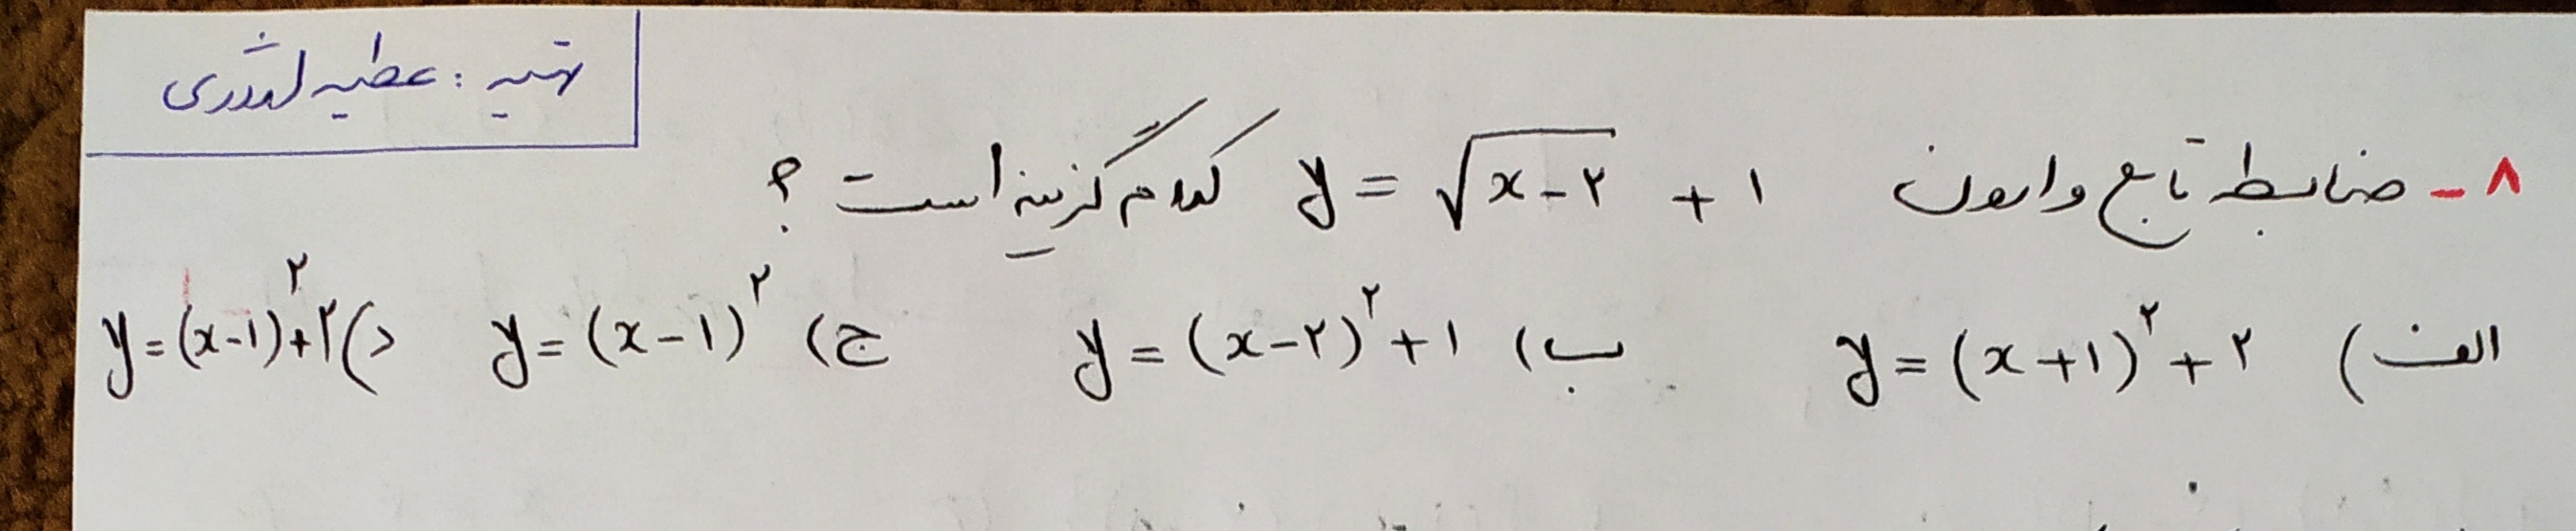 تهیه : عطیه لشدری
۸ - ضابطه تابع وارون y = √x-۲ + ۱ کدام گزینه است ؟
الف) y = (x+۱)^۲ + ۲ ب) y = (x-۲)^۲ + ۱ ج) y = (x-۱)^۲ د) y = (x-۱)^۲ + ۲